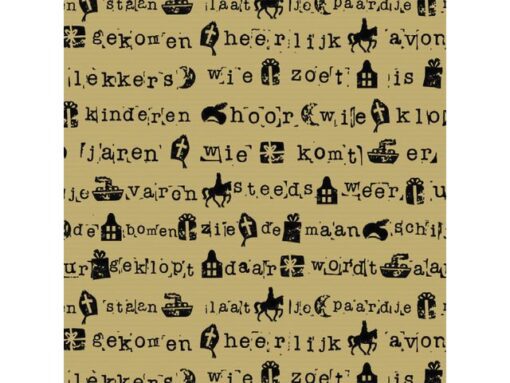 n staan laat je paardje
gekomen heerlijk avon
lekkers wie zoet is
kinderen hoor wie klop
jaren wie komt er
je varen steeds weer u
de bomen zie de maan schij
ur geklopt daar wordt aa
n staan laat je paardje
gekomen heerlijk avon
lekkers wie zoet is